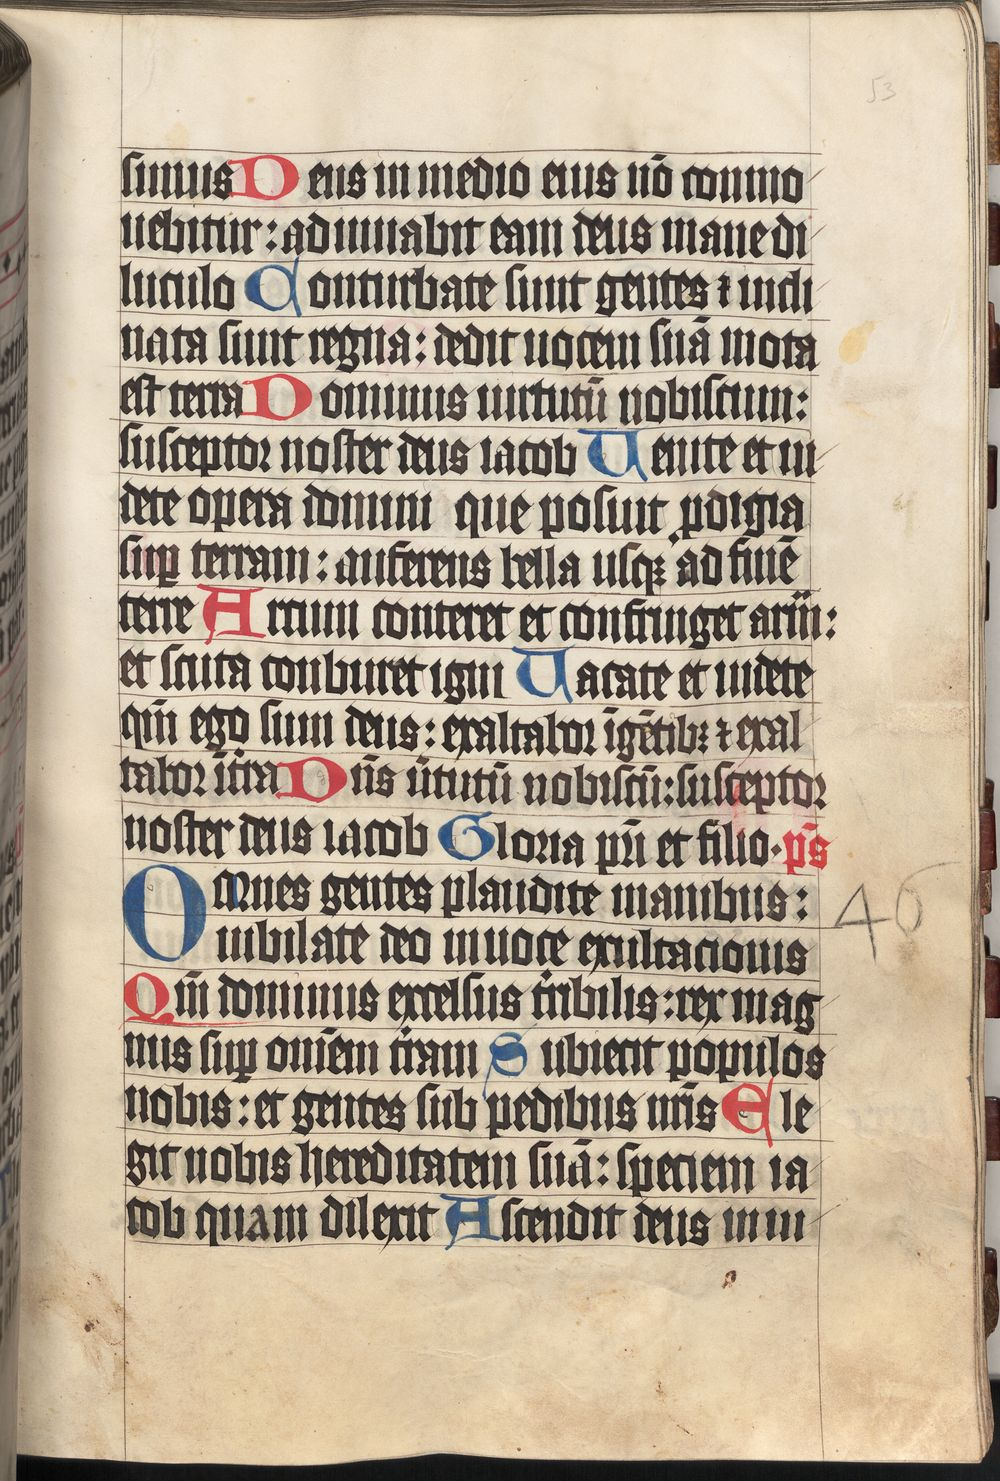 53
simus Deus in medio eius nō conmo
uebitur: adiuuabit eam deus mane di
luculo Conturbate sunt gentes ⁊ incli
nata sunt regna: dedit uocem suā mota
est terra Dominus uirtutū nobiscum:
susceptor noster deus iacob Uenite et ui
dete opera domini que posuit pdigia
sup terram: auferens bella usqꝫ ad finē
terre Arcum conteret et confringet arm̄:
et scuta conburet igni Uacate et uidete
qm̄ ego sum deus: exaltabor ī gētibꝫ ⁊ exal
tabor ī tr̄a Dn̄s ūtutū nobiscū: susceptor
noster deus iacob Gloria pr̄i et filio. ps̄
Omnes gentes plaudite manibus:
iubilate deo in uoce exultacionis
Qm̄ dominus excelsus tr̄ribilis: rex mag
nus sup om̄em tr̄am Subiecit populos
nobis: et gentes sub pedibus nr̄is Ele
git nobis hereditatem suā: speciem ia
cob quam dilexit Ascendit deus in iu
46